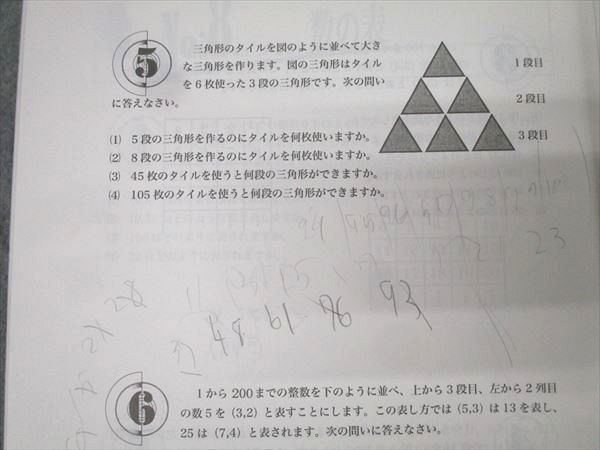 5
三角形のタイルを図のように並べて大き
な三角形を作ります。図の三角形はタイル
を6枚使った3段の三角形です。次の問い
に答えなさい。
1段目
2段目
3段目
(1) 5段の三角形を作るのにタイルを何枚使いますか。
(2) 8段の三角形を作るのにタイルを何枚使いますか。
(3) 45枚のタイルを使うと何段の三角形ができますか。
(4) 105枚のタイルを使うと何段の三角形ができますか。
23
48 61 76 93
6
1から200までの整数を下のように並べ、上から3段目、左から2列目
の数5を(3,2)と表すことにします。この表し方では(5,3)は13を表し、
25は(7,4)と表されます。次の問いに答えなさい。